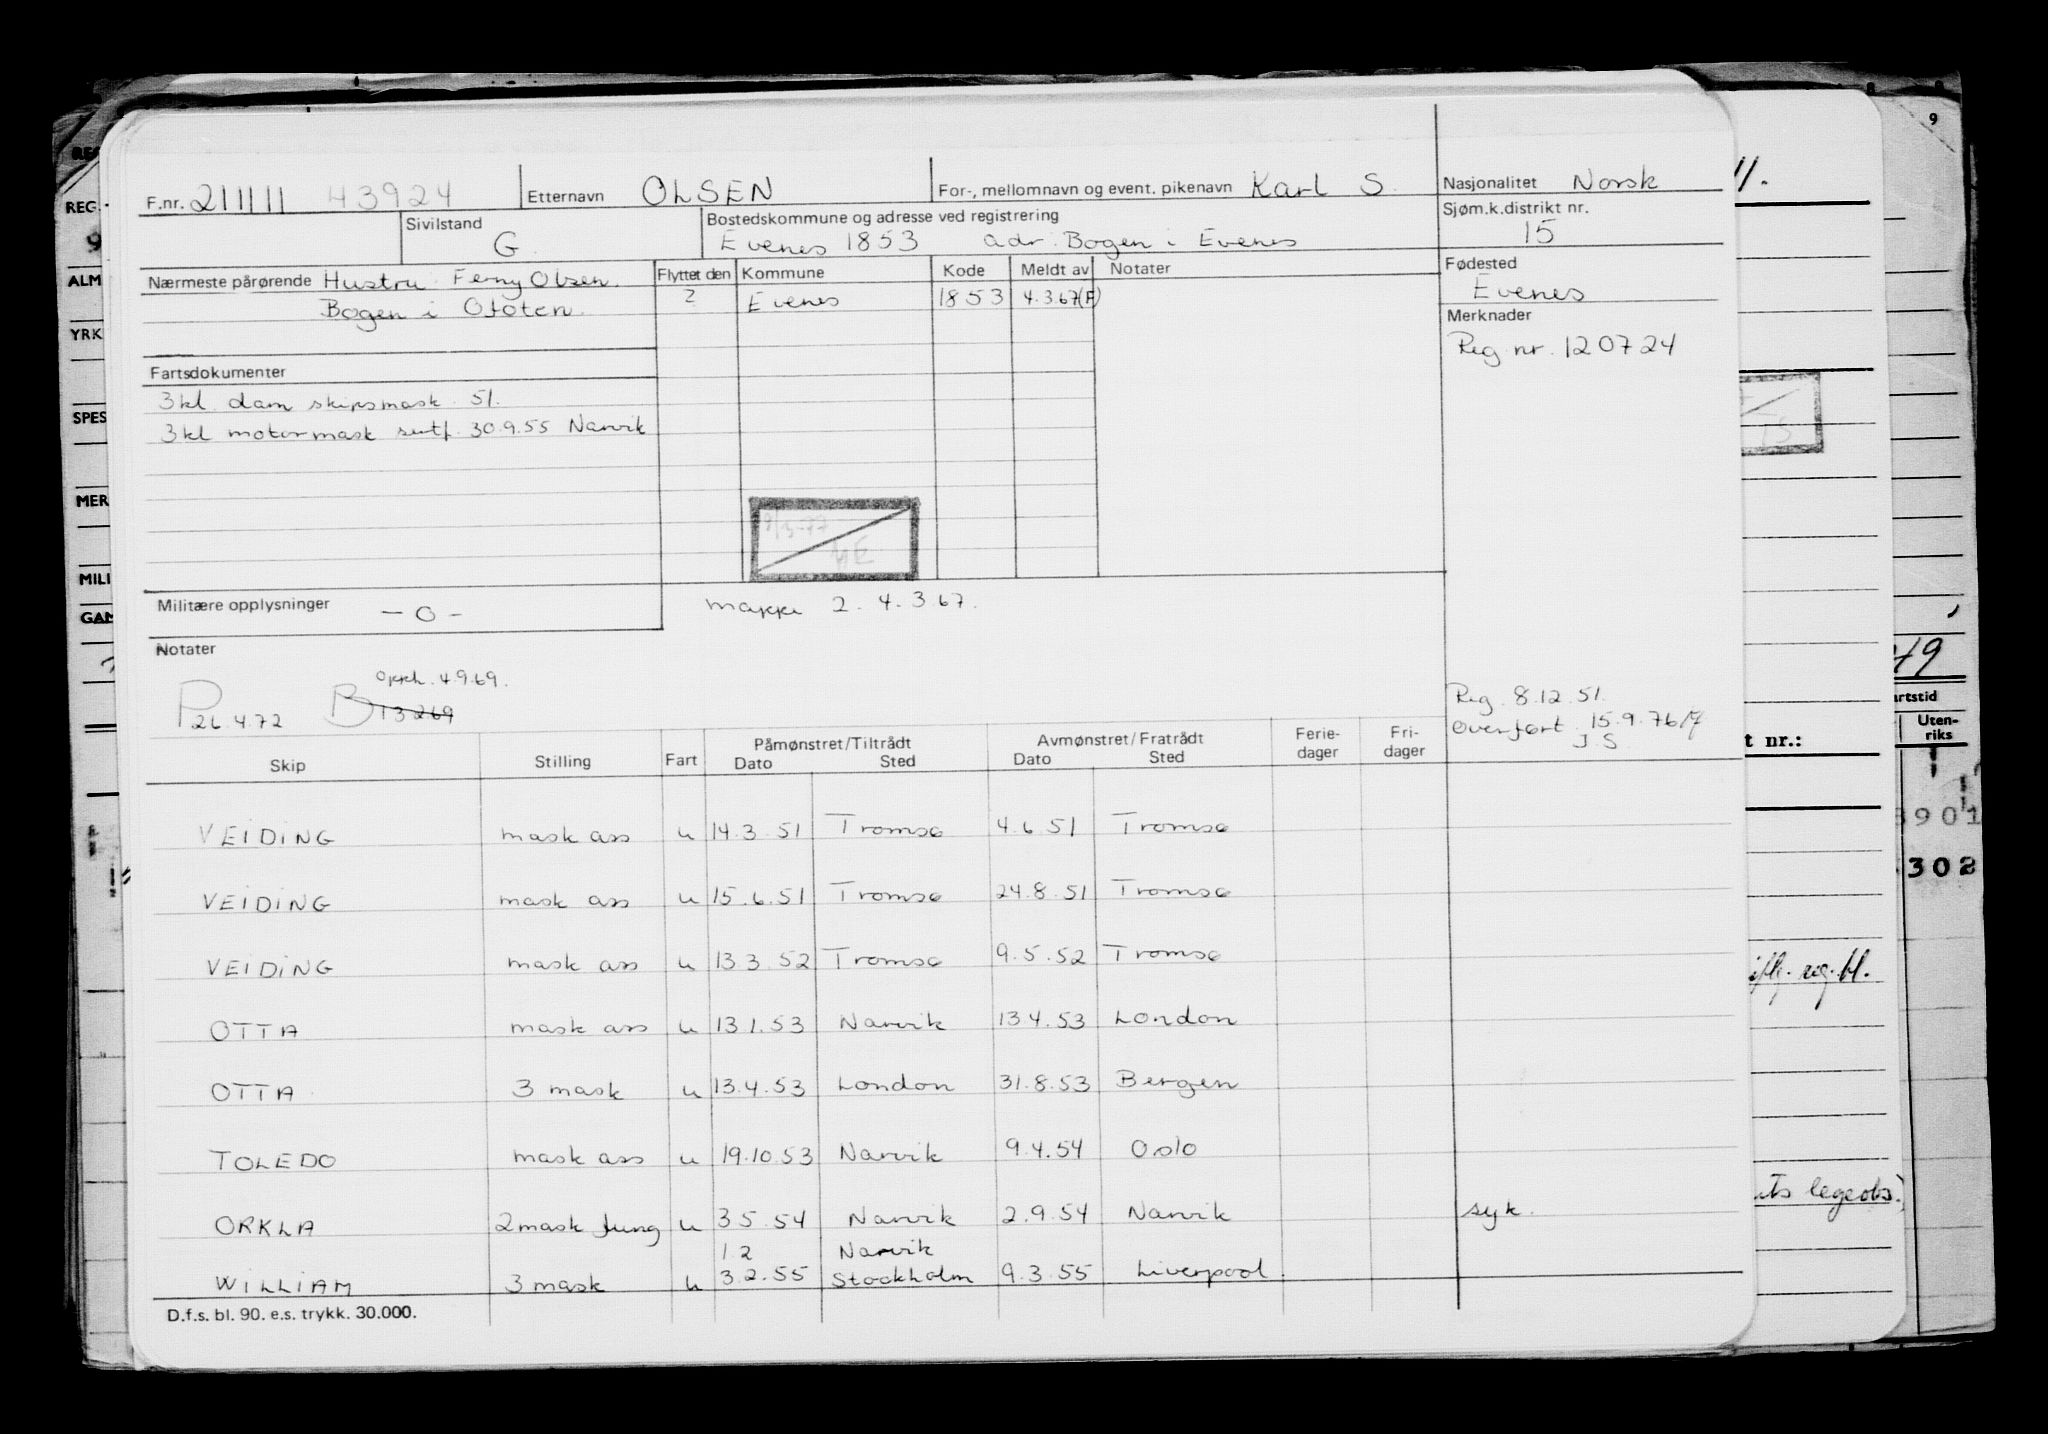 F.nr. 211111 43924 Etternavn OLSEN For-, mellomnavn og event. pikenavn Karl S. Nasjonalitet Norsk
Sivilstand G. Bostedskommune og adresse ved registrering Sjøm.k.distrikt nr.
Evenes 1853 adr: Bogen i Evenes 15
Nærmeste pårørende Hustru Ferny Olsen. Flyttet den Kommune Kode Meldt av Notater Fødested
Bogen i Ofoten. ? Evenes 1853 4.3.67(F) Evenes
Merknader
Reg. nr. 120724
Fartsdokumenter
3kl dam skipsmask 51.
3kl motormask sertf. 30.9.55 Narvik
Militære opplysninger - 0 - mappe 2. 4.3.67.
Notater
opph. 4.9.69.
P 26.4.72 B 13269
Reg. 8.12.51.
Overført 15.9.76
J S
Skip Stilling Fart Påmønstret/Tiltrådt Dato Sted Avmønstret/Fratrådt Dato Sted Ferie-dager Fri-dager
VEIDING mask ass u 14.3.51 Tromsø 4.6.51 Tromsø
VEIDING mask ass u 15.6.51 Tromsø 24.8.51 Tromsø
VEIDING mask ass u 13.3.52 Tromsø 9.5.52 Tromsø
OTTA mask ass u 13.1.53 Narvik 13.4.53 London
OTTA 3 mask u 13.4.53 London 31.8.53 Bergen
TOLEDO mask ass u 19.10.53 Narvik 9.4.54 Oslo
ORKLA 2 mask fung u 3.5.54 Narvik 2.9.54 Narvik syk.
1.2 Narvik
WILLIAM 3 mask u 3.2.55 Stockholm 9.3.55 Liverpool
D.f.s. bl. 90. e.s. trykk. 30.000.
REG.
ALM
YRK
SPES
MER
MILI
GAN
9
11.
49
artstid
Uten-
riks
t nr.:
901
302
reg. bl.
legeobs.